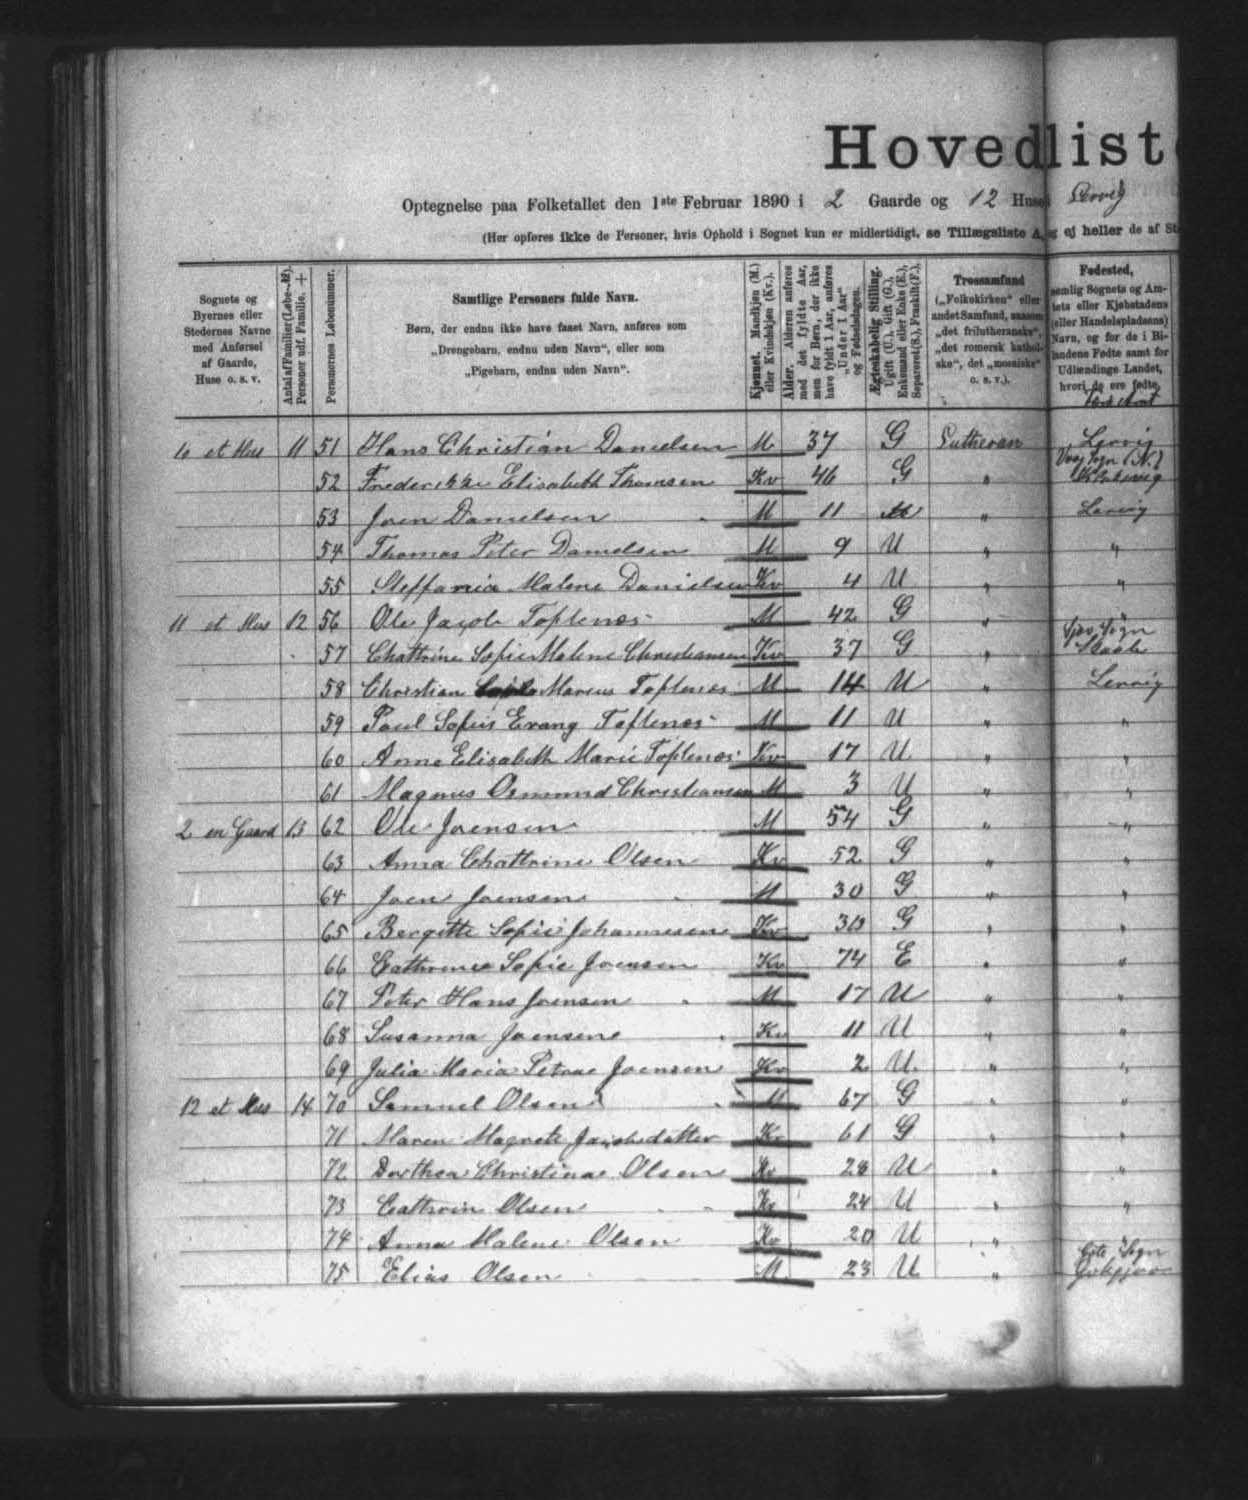 Hovedliste
Optegnelse paa Folketallet den 1ste Februar 1890 i 2 Gaarde og 12 Huse Lervig
(Her opføres ikke de Personer, hvis Ophold i Sognet kun er midlertidigt, se Tillægsliste A, og ej heller de af
Sognets og Byernes eller Stedernes Navne med Anførsel af Gaarde, Huse o. s. v.
Antal af Familier (Løbe-№). Personer udf. Familie. +
Personernes Løbenummer.
Samtlige Personers fulde Navn.
Børn, der endnu ikke have faaet Navn, anføres som
„Drengebarn, endnu uden Navn“, eller som
„Pigebarn, endnu uden Navn“.
Kjønnet. Mandkjøn (M.) eller Kvindekjøn (Kv.).
Alder. Alderen anføres med det fyldte Aar, men for Børn, der ikke have fyldt 1 Aar, anføres „Under 1 Aar“ og Fødselsdagen.
Ægteskabelig Stilling. Ugift (U.), Gift (G.), Enkemand eller Enke (E.), Separeret (S.), Fraskilt (F.).
Trossamfund („Folkekirken“ eller andet Samfund, saasom „det frilutheranske“, „det romersk katholske“, det „mosaiske“ o. s. v.).
Fødested, nemlig Sognets og Amtets eller Kjøbstadens (eller Handelspladsens) Navn, og for de i Bilandene Fødte samt for Udlændinge Landet, hvori de ere fødte.
10 et Hus 11 51 Hans Christian Danielsen M 37 G Lutheran Lervig
52 Frederikke Elisabeth Thomsen Kv 46 G „ Sogn (N.)
53 Joen Danielsen M 11 „ Lervig
54 Thomas Peter Danielsen M 9 U „ „
55 Steffania Malene Danielsen Kv 4 U „ „
11 et Hus 12 56 Ole Jacob Toftenæs M 42 G „ „
57 Chattrine Sofie Malene Christiansen Kv 37 G „ Sogn
58 Christian Marius Toftenæs M 14 U „ Lervig
59 Poul Sofus Evang Toftenæs M 11 U „ „
60 Anne Elisabeth Marie Toftenæs Kv 17 U „ „
61 Magnus Osmund Christiansen M 3 U „ „
2 en Gaard 13 62 Ole Joensen M 54 G „ „
63 Anna Chattrine Olsen Kv 52 G „ „
64 Joen Joensen M 30 G „ „
65 Bergitte Sofie Johannesen Kv 30 G „ „
66 Cathrine Sofie Joensen Kv 74 E „ „
67 Peter Hans Joensen M 17 U „ „
68 Susanna Joensen Kv 11 U „ „
69 Julia Maria Petrae Joensen Kv 2 U „ „
12 et Hus 14 70 Samuel Olsen M 67 G „ „
71 Maren Magrete Jacobsdatter Kv 61 G „ „
72 Dorthea Christina Olsen Kv 28 U „ „
73 Cathrin Olsen Kv 24 U „ „
74 Anna Malene Olsen Kv 20 U „ „
75 Elias Olsen M 23 U „ Sogn